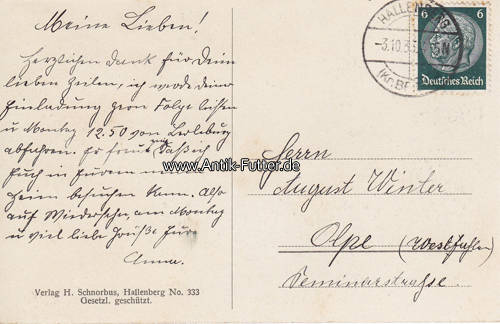 Meine Lieben!
Herzlichen dank für Deine
lieben Zeilen, ich werde deine
Einladung gern Folge leisten
u Montag 12.50 von Berleburg
abfahren. Es freut daß ich
Euch in Eurem
Heim besuchen kann. Also
auf Wiedersehn am Montag
u viel liebe Grüße Eure
Anna.
Verlag H. Schnorbus, Hallenberg No. 333
Gesetzl. geschützt.
www.Antik-Futter.de
HALLENBERG
-3.10.3
N
(Kr. B
6 6
Deutsches Reich
Herrn
August Winter
Olpe (Westfalen)
Seminarstrasse.